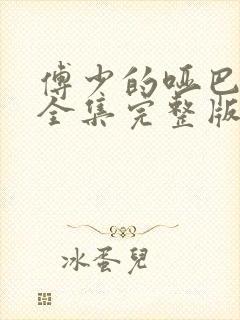 傅少的哑巴
全集完整版
冰蛋兒